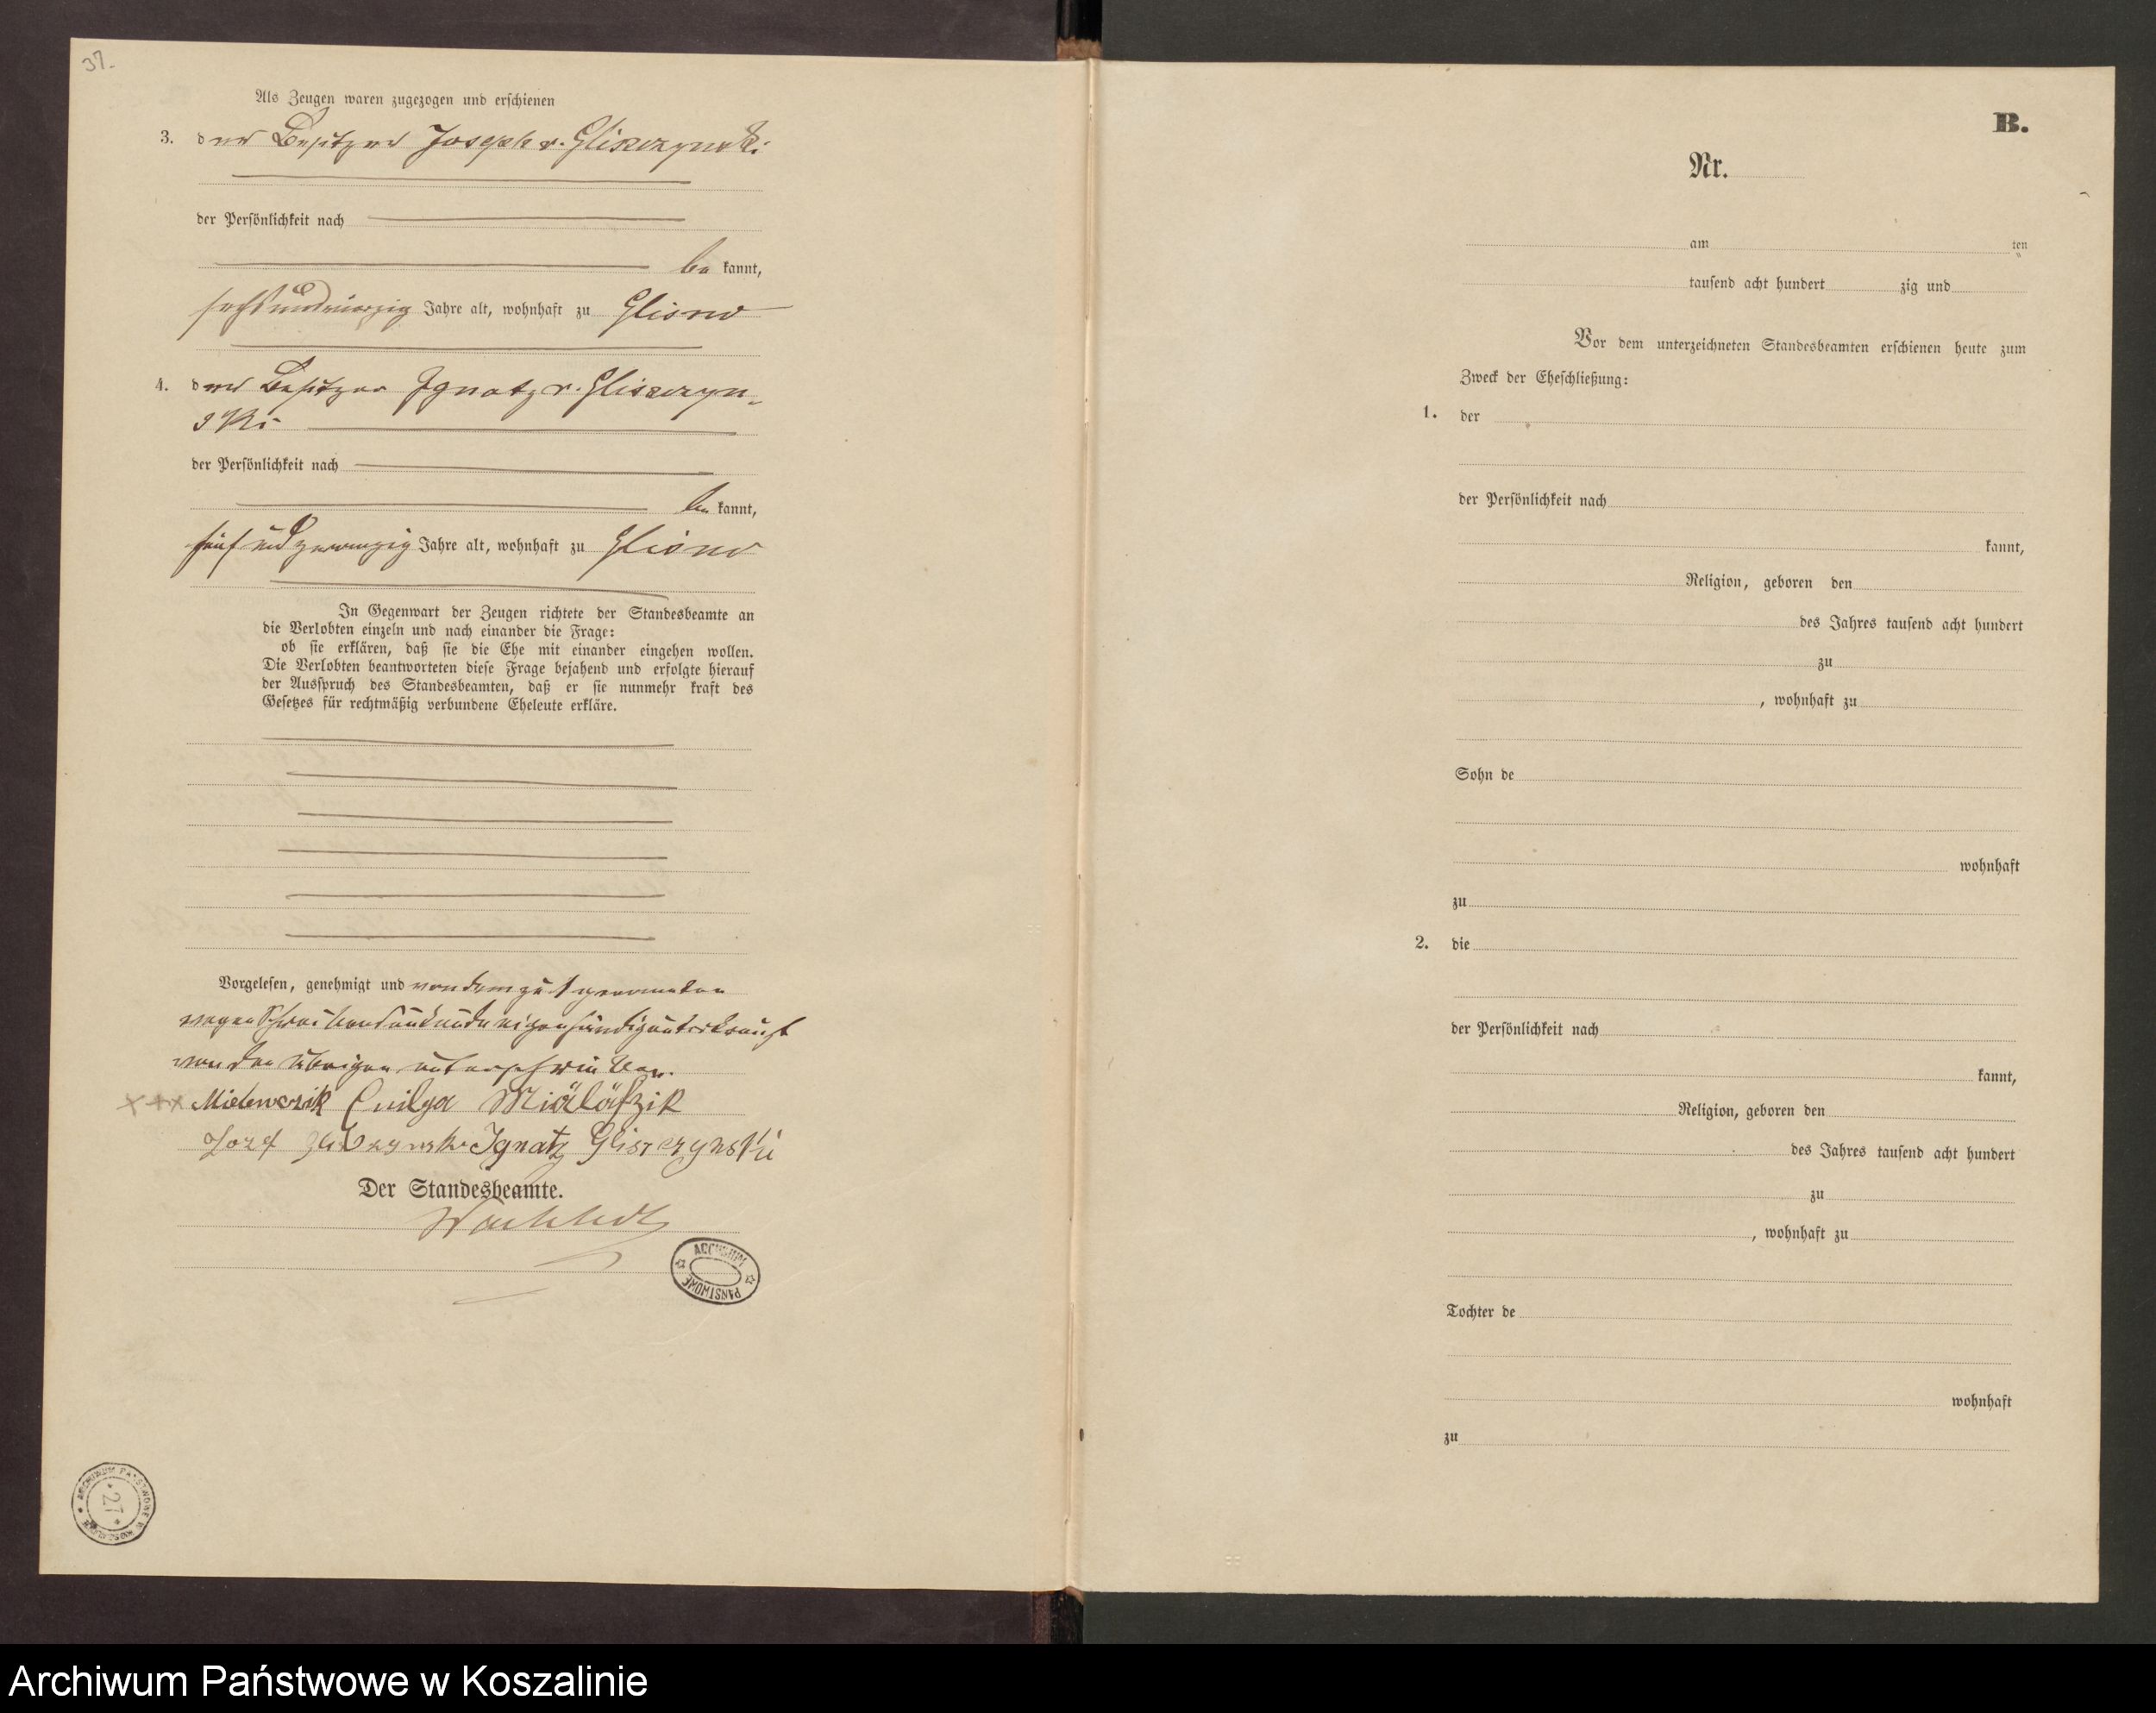 37.
Als Zeugen waren zugezogen und erschienen
3. der Besitzer Joseph v. Gliszczynski
der Persönlichkeit nach
be kannt,
sechsundvierzig Jahre alt, wohnhaft zu Glisno
4. der Besitzer Ignatz v. Gliszczyn-
ski
der Persönlichkeit nach
be kannt,
fünfundzwanzig Jahre alt, wohnhaft zu Glisno
In Gegenwart der Zeugen richtete der Standesbeamte an
die Verlobten einzeln und nach einander die Frage:
ob sie erklären, daß sie die Ehe mit einander eingehen wollen.
Die Verlobten beantworteten diese Frage bejahend und erfolgte hierauf
der Ausspruch des Standesbeamten, daß er sie nunmehr kraft des
Gesetzes für rechtmäßig verbundene Eheleute erkläre.
Vorgelesen, genehmigt und von dem zu 1 genannten
wegen Schreibensunkunde eigenhändig unterkreuzt
von den übrigen unterschrieben.
+++ Mielewczik
Jozef Ignatz Gliszczynski
Der Standesbeamte.
ARCHIWUM PAŃSTWOWE
ARCHIWUM PAŃSTWOWE W KOSZALINIE
27
B.
Nr.
am ten
tausend acht hundert zig und
Vor dem unterzeichneten Standesbeamten erschienen heute zum
Zweck der Eheschließung:
1. der
der Persönlichkeit nach
kannt,
Religion, geboren den
des Jahres tausend acht hundert
zu
, wohnhaft zu
Sohn de
wohnhaft
zu
2. die
der Persönlichkeit nach
kannt,
Religion, geboren den
des Jahres tausend acht hundert
zu
, wohnhaft zu
Tochter de
wohnhaft
zu
Archiwum Państwowe w Koszalinie